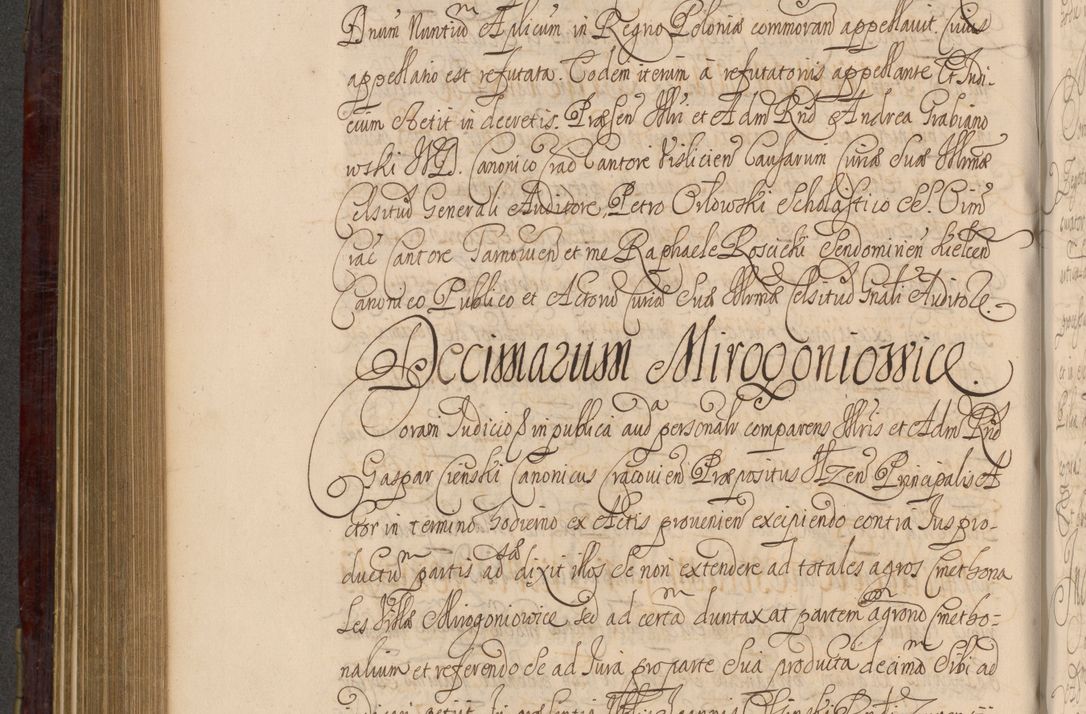 Dnum Nuntiu Aplicum in Regno Poloniæ commoran appellavit. Cuius
appellatio est refutata. Eodem iterum à refutatoriis appellante Et Judi-
cium stetit in decretis. Præsen Illri et Adm Rnd Andrea Grabiano
wski JUD. Canonico Crac Cantore Visliciens Causarum Curiæ Suæ Illrmæ
Celsitud Generali Auditore, Petro Orlowski Scholastico SS. Oim
Crac Cantore Tarnovien et me Raphaele Roscicki Sendomirien Kielcen
Canonico Publico et Actorum Curiæ Suæ Illrmæ Celsitud Gnali Auditore.
Decimarum Mirogoniowice.
Coram Judicio in publica aud personalr comparens Illris et Adm Rnd
Gaspar Cienski Canonicus Cracovien Præpositus Principalis A
ctor in termino hodierno ex Actis provenien excipiendo contra Jus pro-
ductum partis ad dixit illos se non extendere ad totales agros Cmethona
les Villæ Mirogoniowice sed ad certam duntaxat partem agrorum Cmetho-
nalium et referendo se ad Jura pro parte sua producta decimam sibi ad